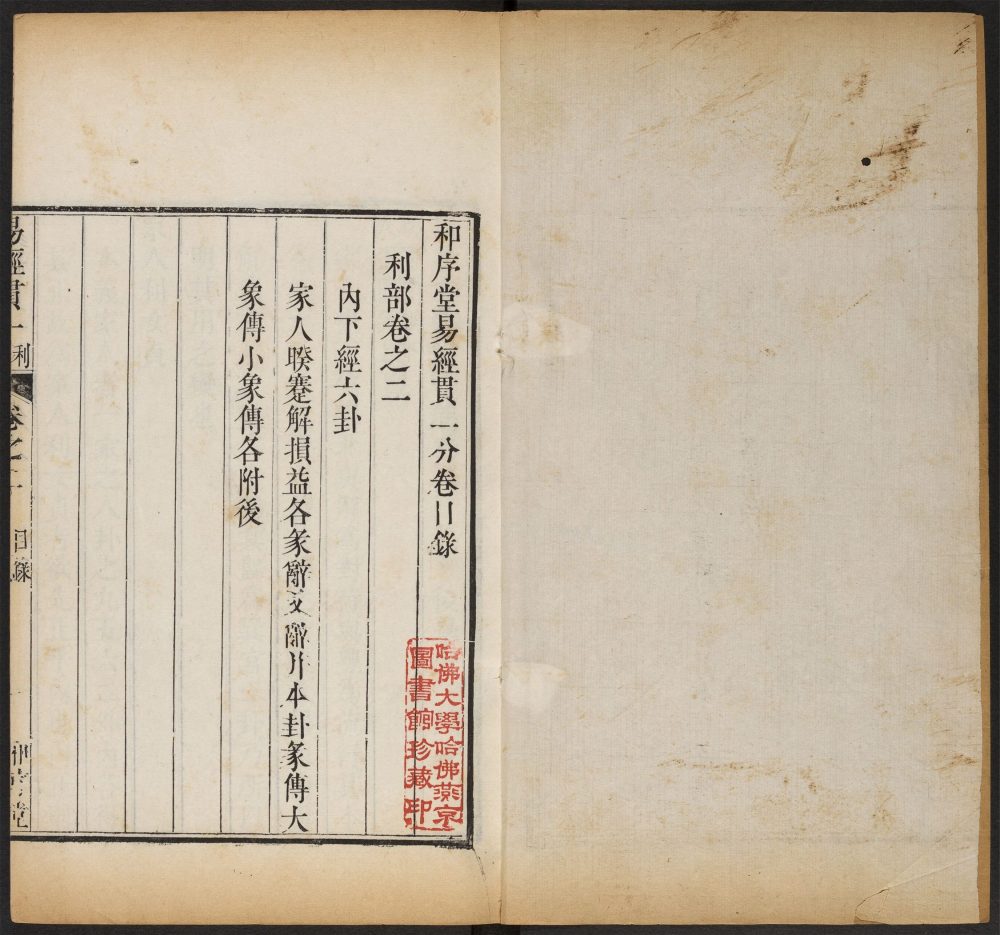 和序堂易經貫一分卷目錄
利部卷之二
內下經六卦
家人睽蹇解損益各彖辭爻辭片本卦彖傳大
象傳小象傳各附後
哈佛大學哈佛燕京
圖書館珍藏印
易經貫一利
卷之二
目錄
和序堂